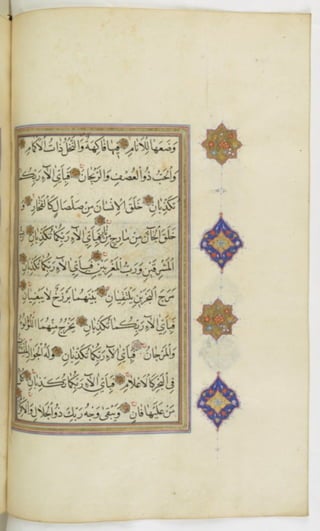 وَضَعَهَا لِلْأَنَامِ فِيهَا فَاكِهَةٌ وَالنَّخْلُ ذَاتُ الْأَكْمَامِ
وَالْحَبُّ ذُو الْعَصْفِ وَالرَّيْحَانُ فَبِأَيِّ آلَاءِ رَبِّكُمَا
تُكَذِّبَانِ خَلَقَ الْإِنْسَانَ مِنْ صَلْصَالٍ كَالْفَخَّارِ وَ
خَلَقَ الْجَانَّ مِنْ مَارِجٍ مِنْ نَارٍ فَبِأَيِّ آلَاءِ رَبِّكُمَا تُكَذِّبَانِ رَبُّ
الْمَشْرِقَيْنِ وَرَبُّ الْمَغْرِبَيْنِ فَبِأَيِّ آلَاءِ رَبِّكُمَا تُكَذِّبَانِ
مَرَجَ الْبَحْرَيْنِ يَلْتَقِيَانِ بَيْنَهُمَا بَرْزَخٌ لَا يَبْغِيَانِ
فَبِأَيِّ آلَاءِ رَبِّكُمَا تُكَذِّبَانِ يَخْرُجُ مِنْهُمَا اللُّؤْلُؤُ
وَالْمَرْجَانُ فَبِأَيِّ آلَاءِ رَبِّكُمَا تُكَذِّبَانِ وَلَهُ الْجَوَارِ الْمُنْشَآتُ
فِي الْبَحْرِ كَالْأَعْلَامِ فَبِأَيِّ آلَاءِ رَبِّكُمَا تُكَذِّبَانِ كُلُّ
مَنْ عَلَيْهَا فَانٍ وَيَبْقَى وَجْهُ رَبِّكَ ذُو الْجَلَالِ وَالْإِكْرَامِ